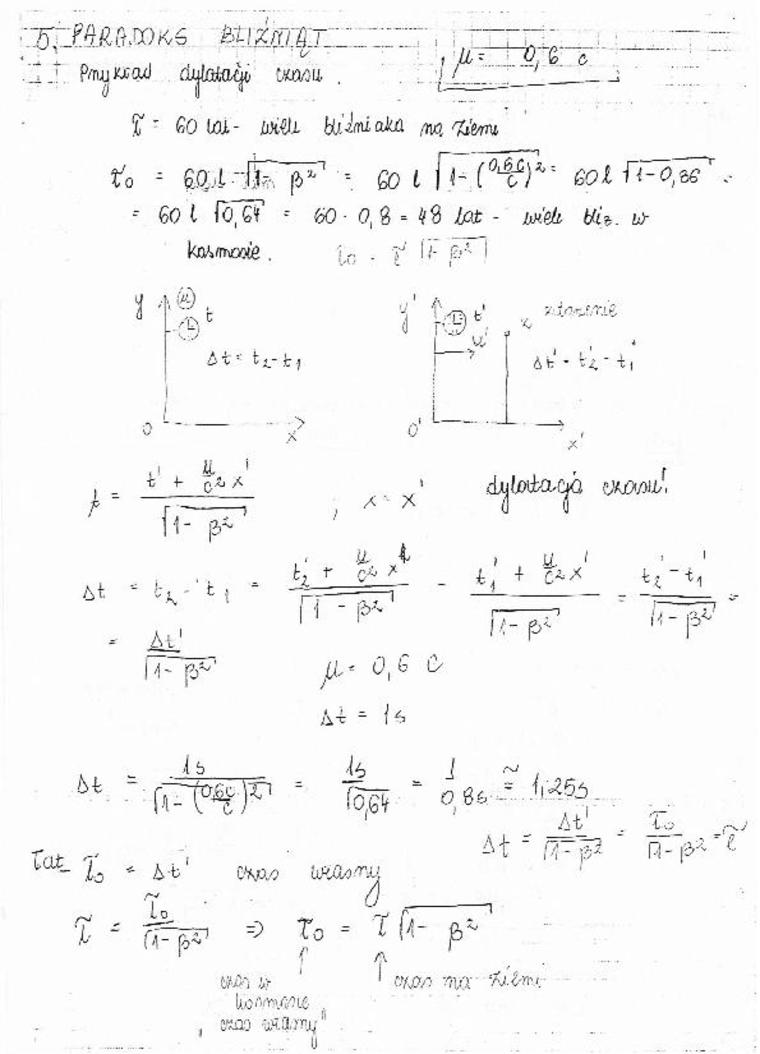 5. PARADOKS BLIŹNIĄT
μ = 0,6 c
Przykład dylatacji czasu.
τ = 60 lat - wiek bliźniaka na ziemi
τ₀ = 60 l √(1 - β²) = 60 l √(1 - (0,6c/c)²) = 60 l √(1 - 0,36) =
= 60 l √0,64 = 60 · 0,8 = 48 lat - wiek bliź. w
kosmosie. τ₀ = τ √(1 - β²)
y t
Δt = t₂ - t₁
0 x
y' t' u' x zdarzenie
Δt' = t₂' - t₁'
0' x'
t = (t' + u/c² x') / √(1 - β²) ; x = x' dylatacja czasu!
Δt = t₂ - t₁ = (t₂' + u/c² x') / √(1 - β²) - (t₁' + u/c² x') / √(1 - β²) = (t₂' - t₁') / √(1 - β²) =
= Δt' / √(1 - β²) μ = 0,6 c
Δt = 1s
Δt = 1s / √(1 - (0,6c/c)²) = 1s / √0,64 = 1 / 0,8s ≅ 1,25s
Δt = Δt' / √(1 - β²) = τ₀ / √(1 - β²) = τ
τ₀ = Δt' czas własny
τ = τ₀ / √(1 - β²) => τ₀ = τ √(1 - β²)
↑ ↑ czas na ziemi
czas w
kosmosie
„czas własny"